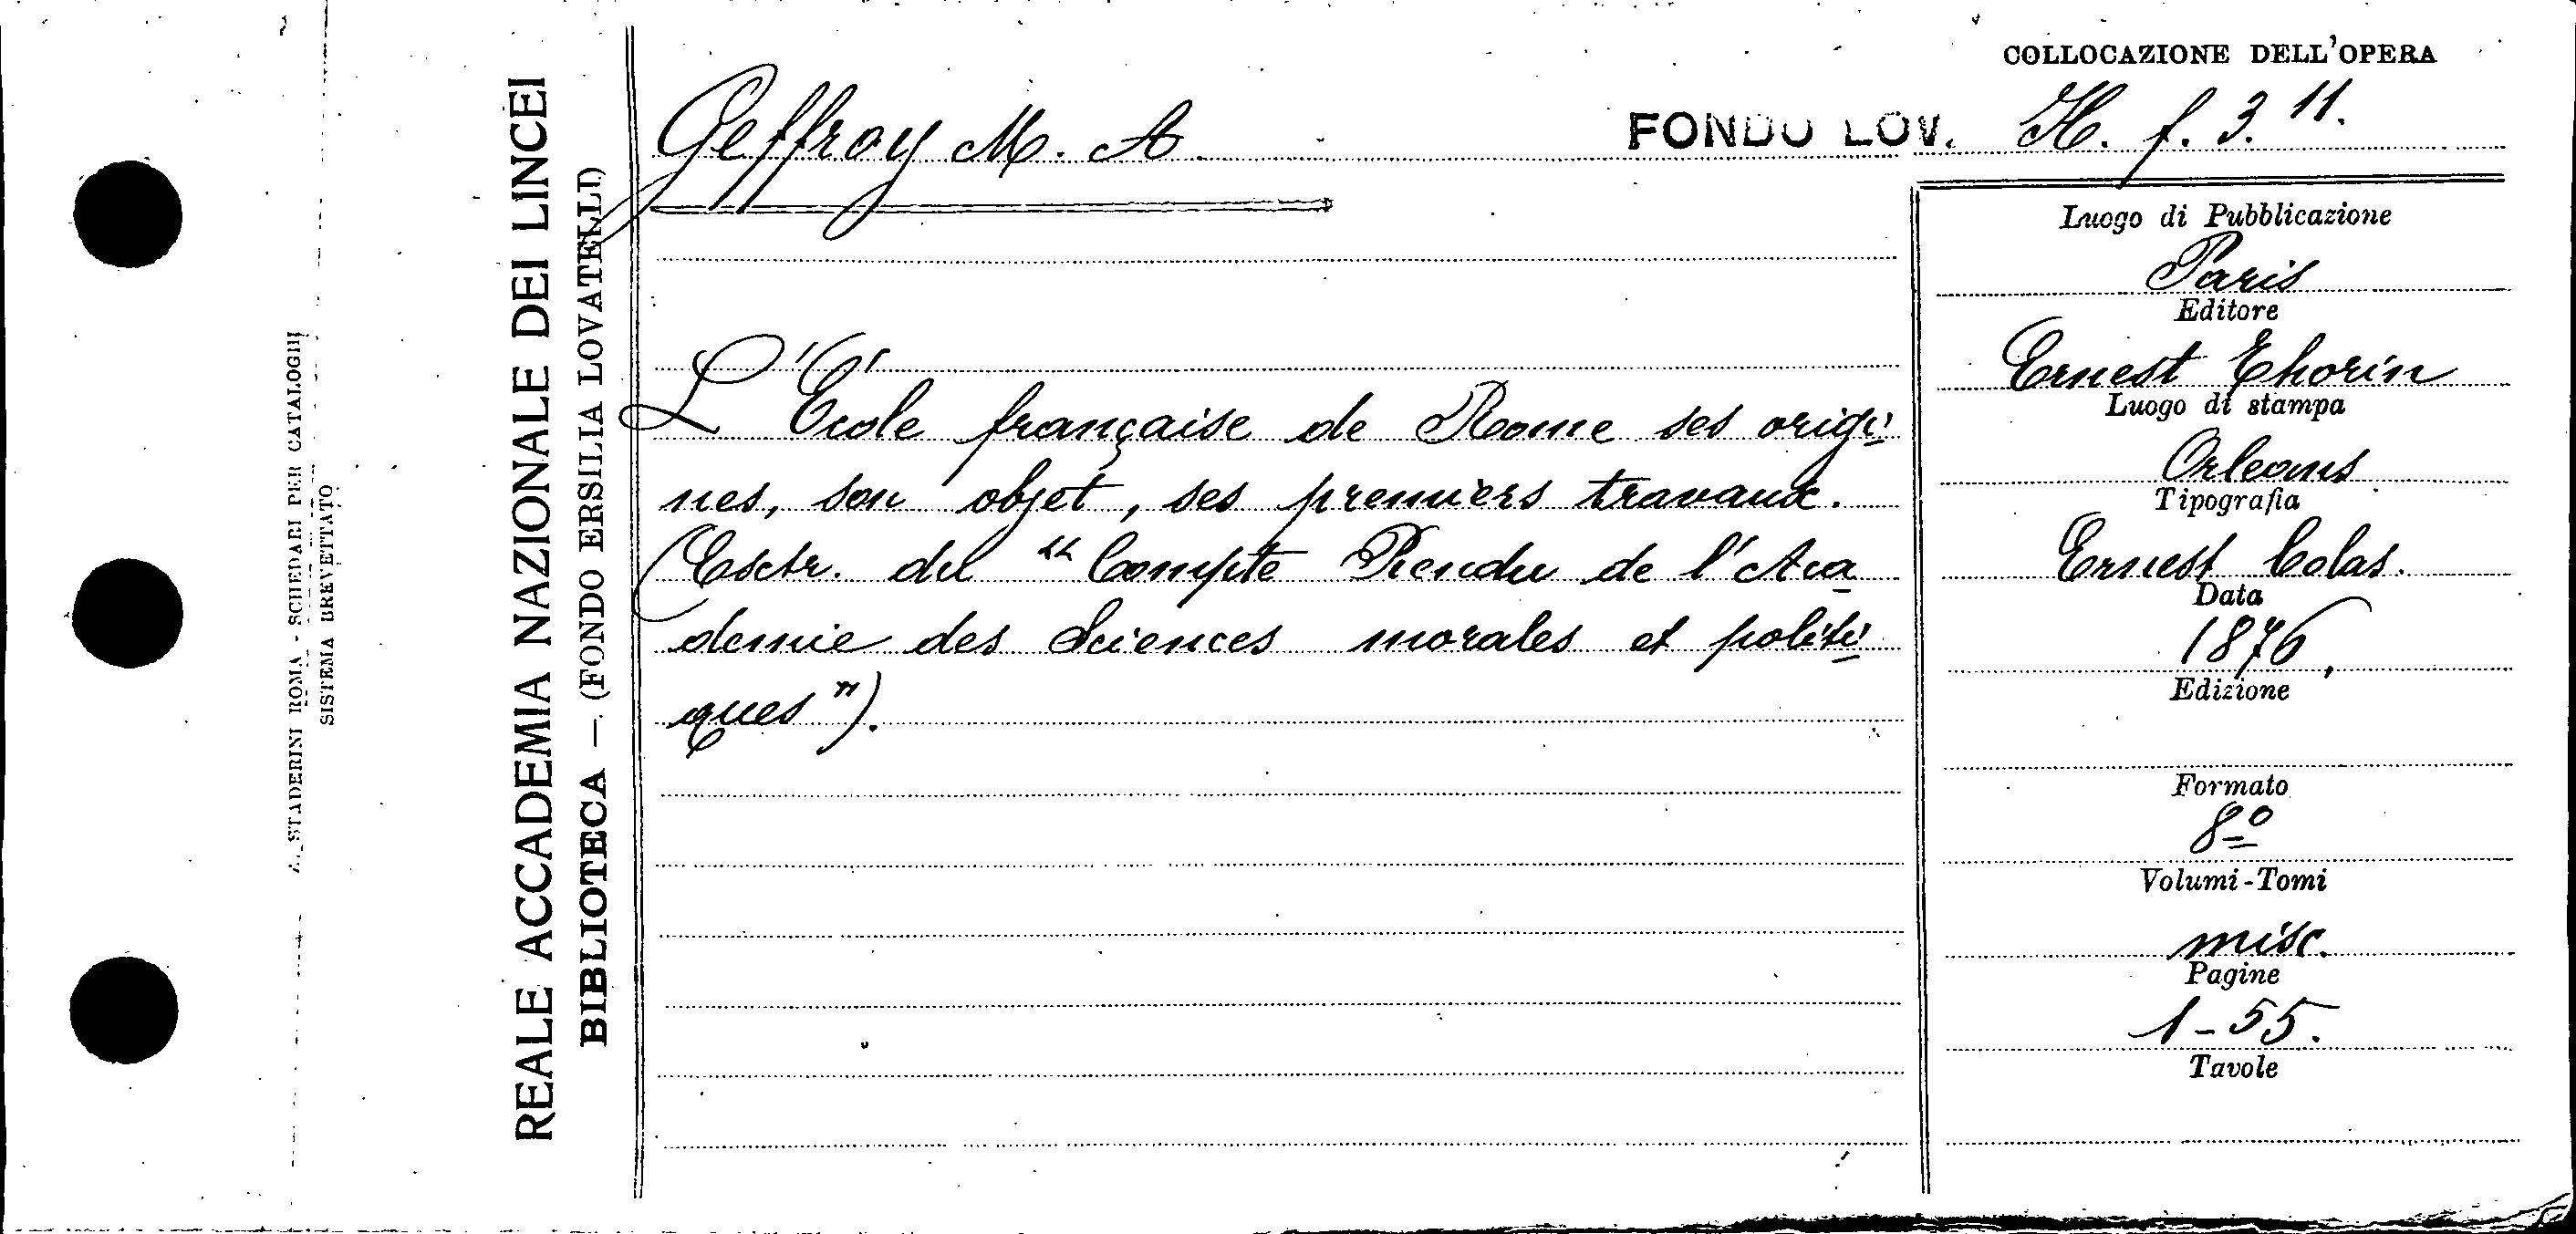 COLLOCAZIONE DELL'OPERA
FONDO LOV. H. f. 3. 11.
Geffroy M. A.
L'École française de Rome ses origi
nes, son objet, ses premiers travaux.
(Esctr. del "Compte Rendu de l'Aca
demie des Sciences morales et politi
ques").
Luogo di Pubblicazione
Paris
Editore
Ernest Thorin
Luogo di stampa
Orleans
Tipografia
Ernest Colas.
Data
1876,
Edizione
Formato
8º
Volumi-Tomi
misc.
Pagine
1-55.
Tavole
REALE ACCADEMIA NAZIONALE DEI LINCEI
BIBLIOTECA — (FONDO ERSILIA LOVATELLI)
A. STADERINI ROMA - SCHEDARI PER CATALOGHI
SISTEMA BREVETTATO